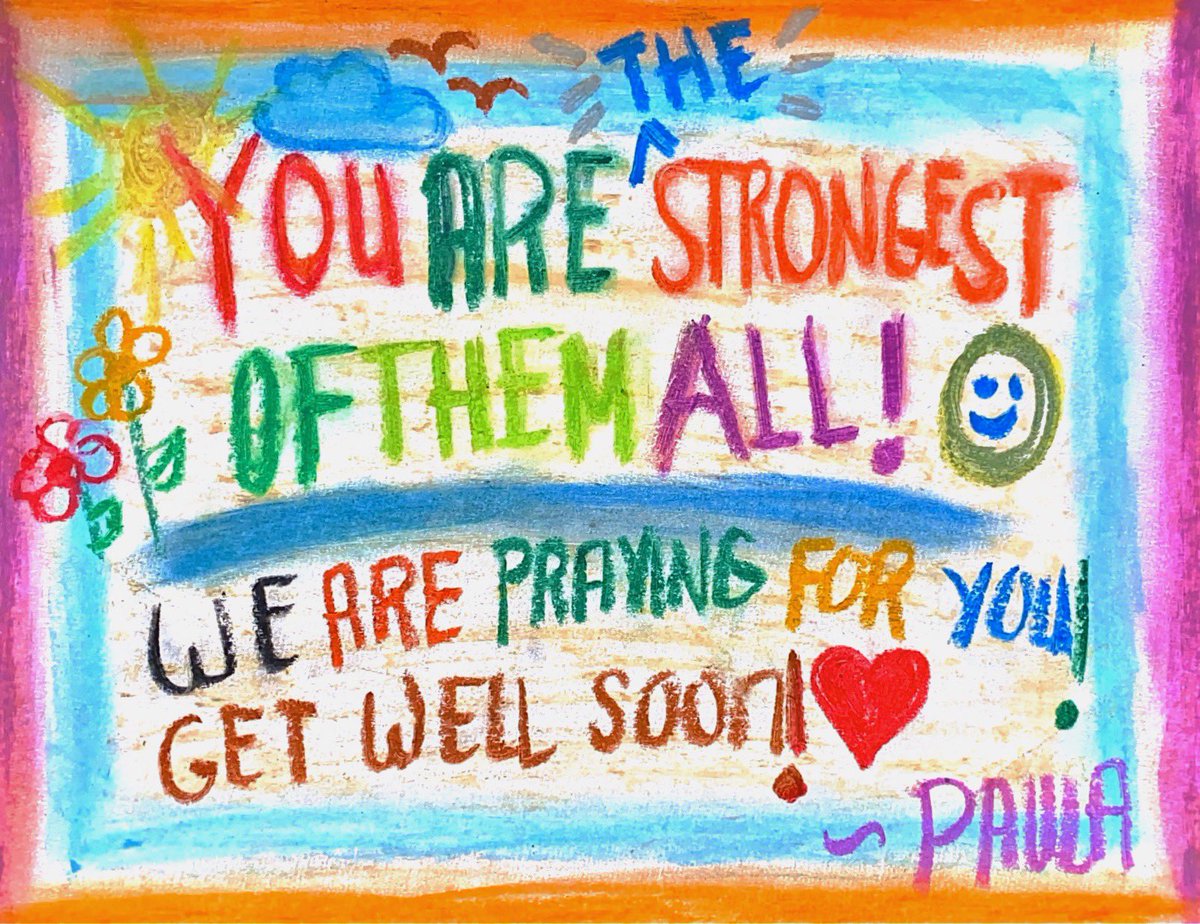 YOU ARE THE STRONGEST
OF THEM ALL!
WE ARE PRAYING FOR YOU!
GET WELL SOON!
~ PAULA